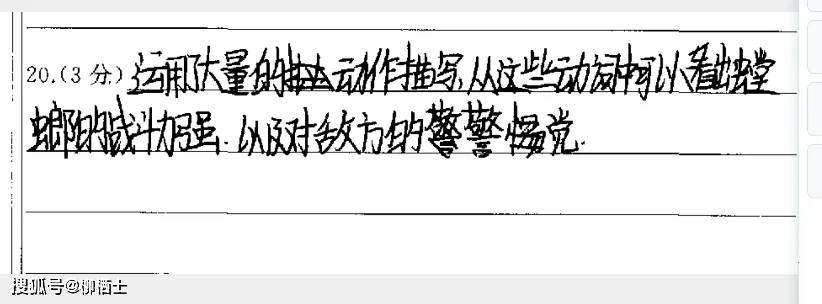 20.(3分)运用大量的动作描写,从这些动词中可以看出螳
螂的战斗力强.以及对敌方的警警惕觉.
搜狐号@柳栖士